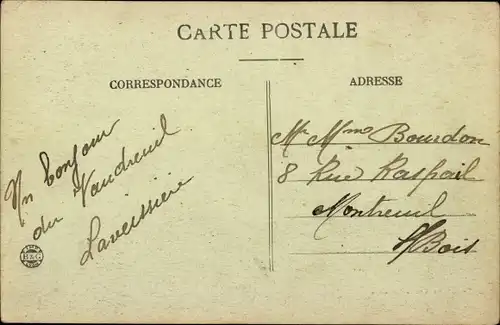 CARTE POSTALE
CORRESPONDANCE
Un bonjour
du Vaudreuil
Laveissière
B&G
ADRESSE
Mr Mme Bourdon
8 Rue Raspail
Montreuil
s/Bois